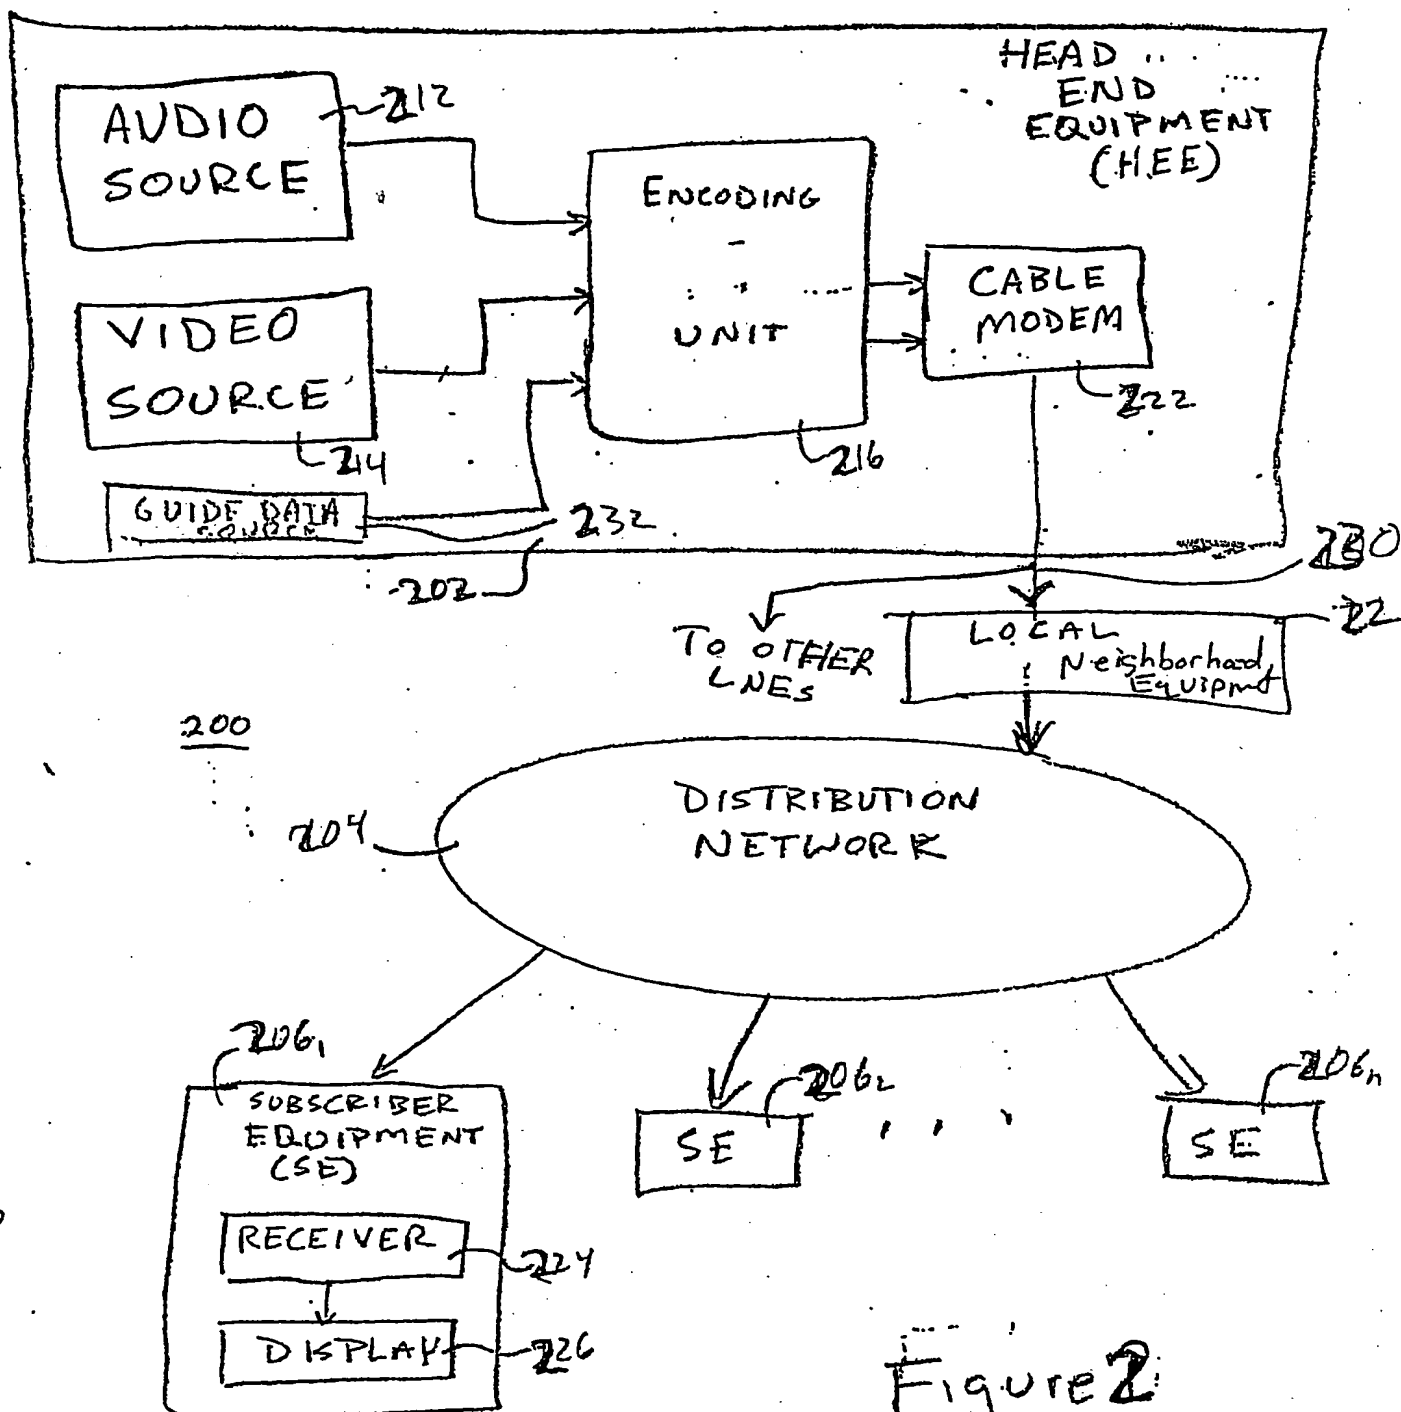 HEAD
END
EQUIPMENT
(HEE)
AUDIO
SOURCE
212
ENCODING
UNIT
216
CABLE
MODEM
222
VIDEO
SOURCE
214
GUIDE DATA
SOURCE
232
202
230
TO OTHER
LNES
LOCAL
Neighborhood
Equipmt
22
200
DISTRIBUTION
NETWORK
204
206₁
SUBSCRIBER
EQUIPMENT
(SE)
RECEIVER
224
DISPLAY
226
SE
206₂
SE
206ₙ
Figure 2